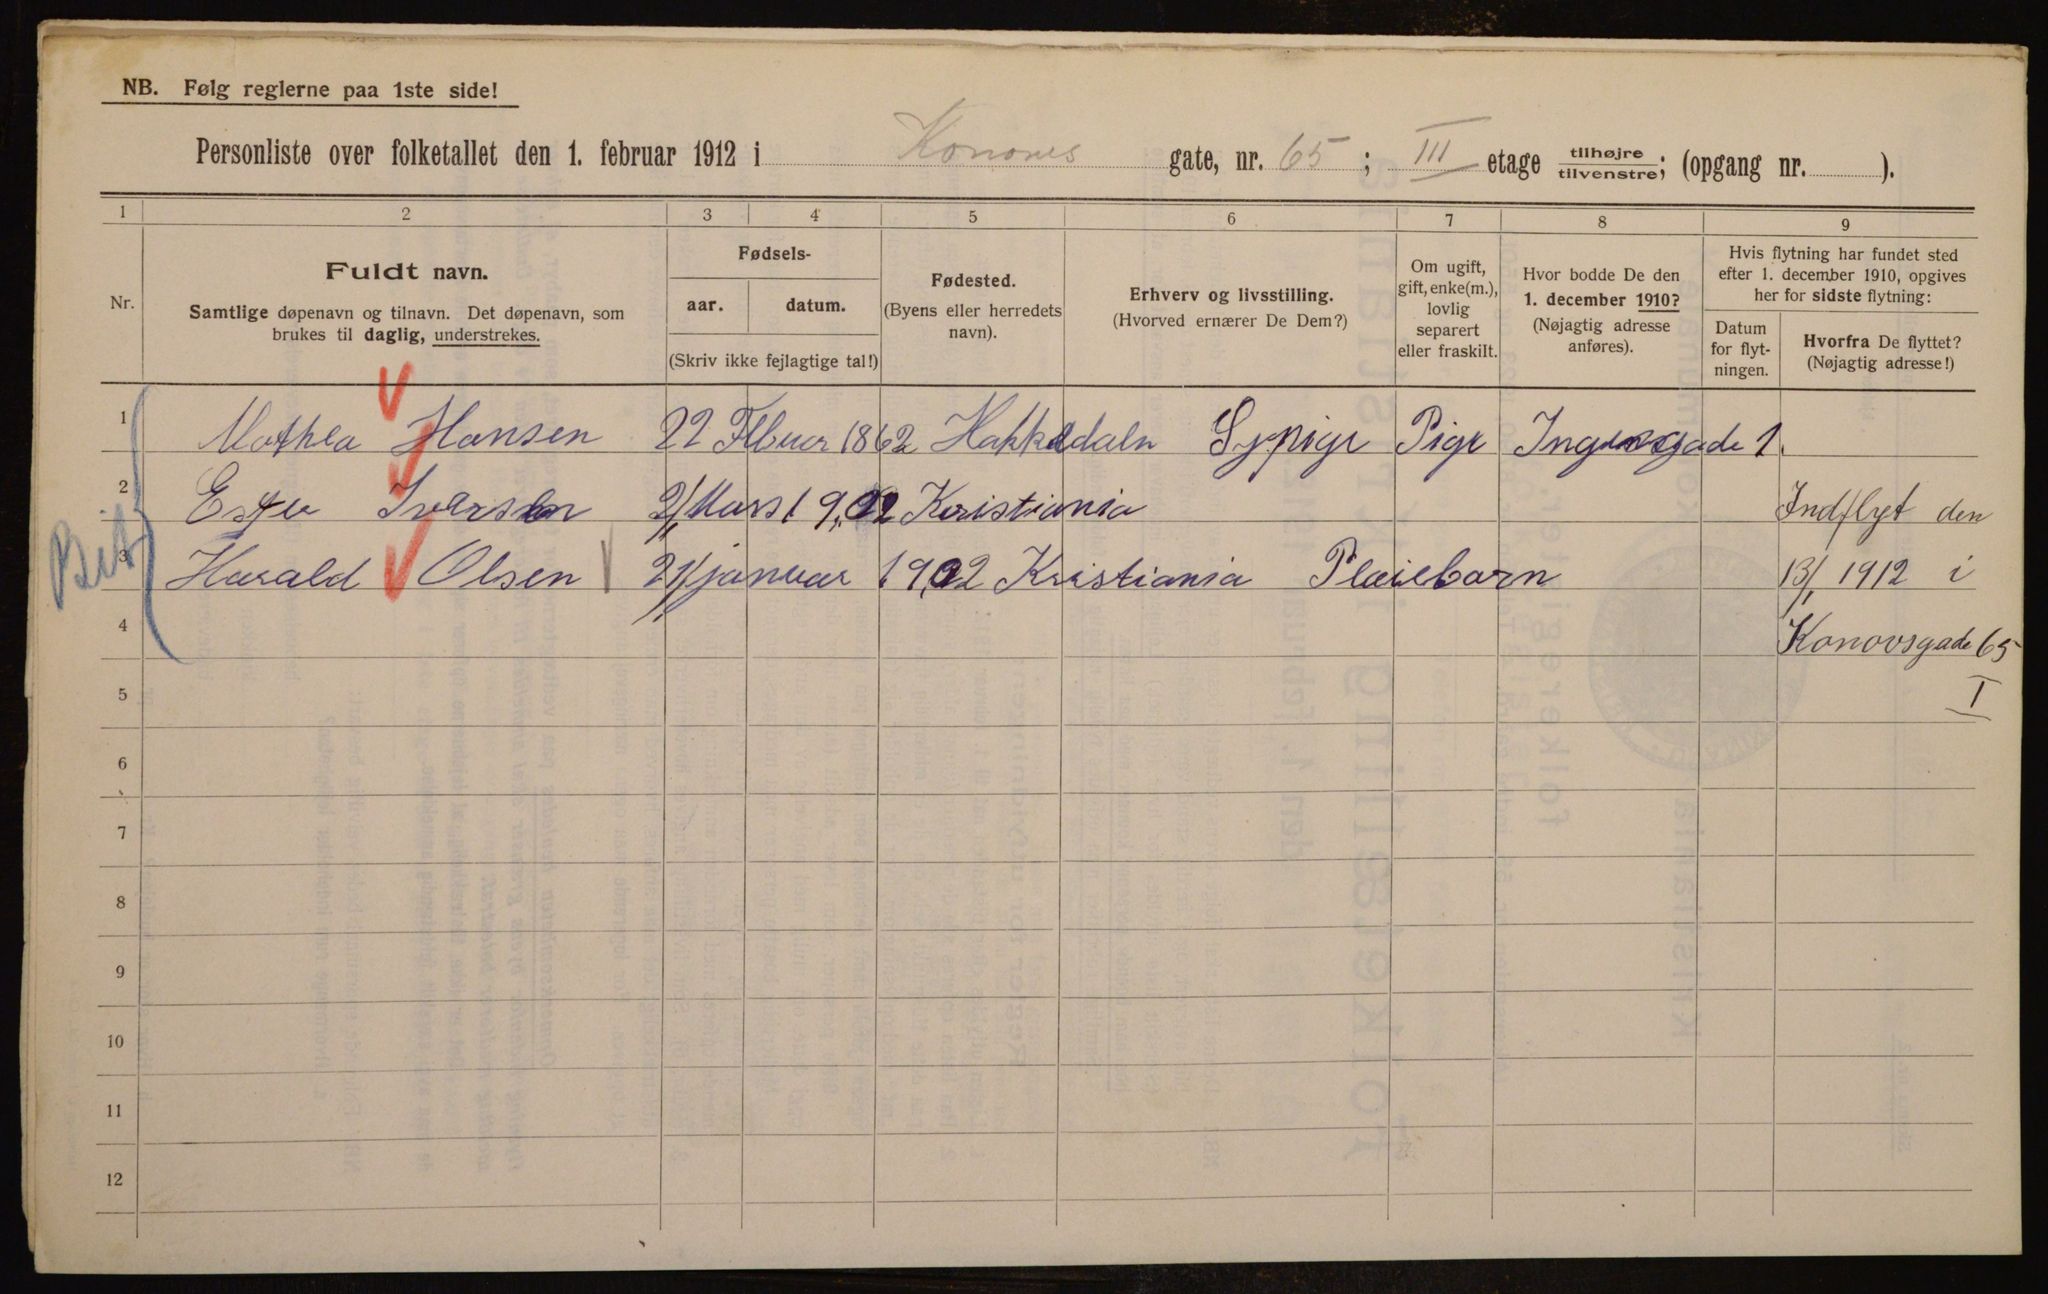 NB. Følg reglerne paa 1ste side!
Personliste over folketallet den 1. februar 1912 i Konows gate, nr. 65; III etage tilhøjre/tilvenstre; (opgang nr. ).
1 2 3 4 5 6 7 8 9
Nr.
Fuldt navn.
Samtlige døpenavn og tilnavn. Det døpenavn, som
brukes til daglig, understrekes.
Fødsels-
aar. datum.
(Skriv ikke fejlagtige tal!)
Fødested.
(Byens eller herredets
navn).
Erhverv og livsstilling.
(Hvorved ernærer De Dem?)
Om ugift,
gift, enke(m.),
lovlig
separert
eller fraskilt.
Hvor bodde De den
1. december 1910?
(Nøjagtig adresse
anføres).
Hvis flytning har fundet sted
efter 1. december 1910, opgives
her for sidste flytning:
Datum
for flyt-
ningen.
Hvorfra De flyttet?
(Nøjagtig adresse!)
1 Mathea Hansen 22 Febuar 1862 Hakkedaln Sypige Pige gade 1.
2 Iversen 2/1 Mars 1902 Kristiania Indflyt den
3 Harald Olsen 21/ januar 1902 Kristiania Pleiebarn 13/1 1912 i
4 Konovsgade 65
5 I
6
7
8
9
10
11
12